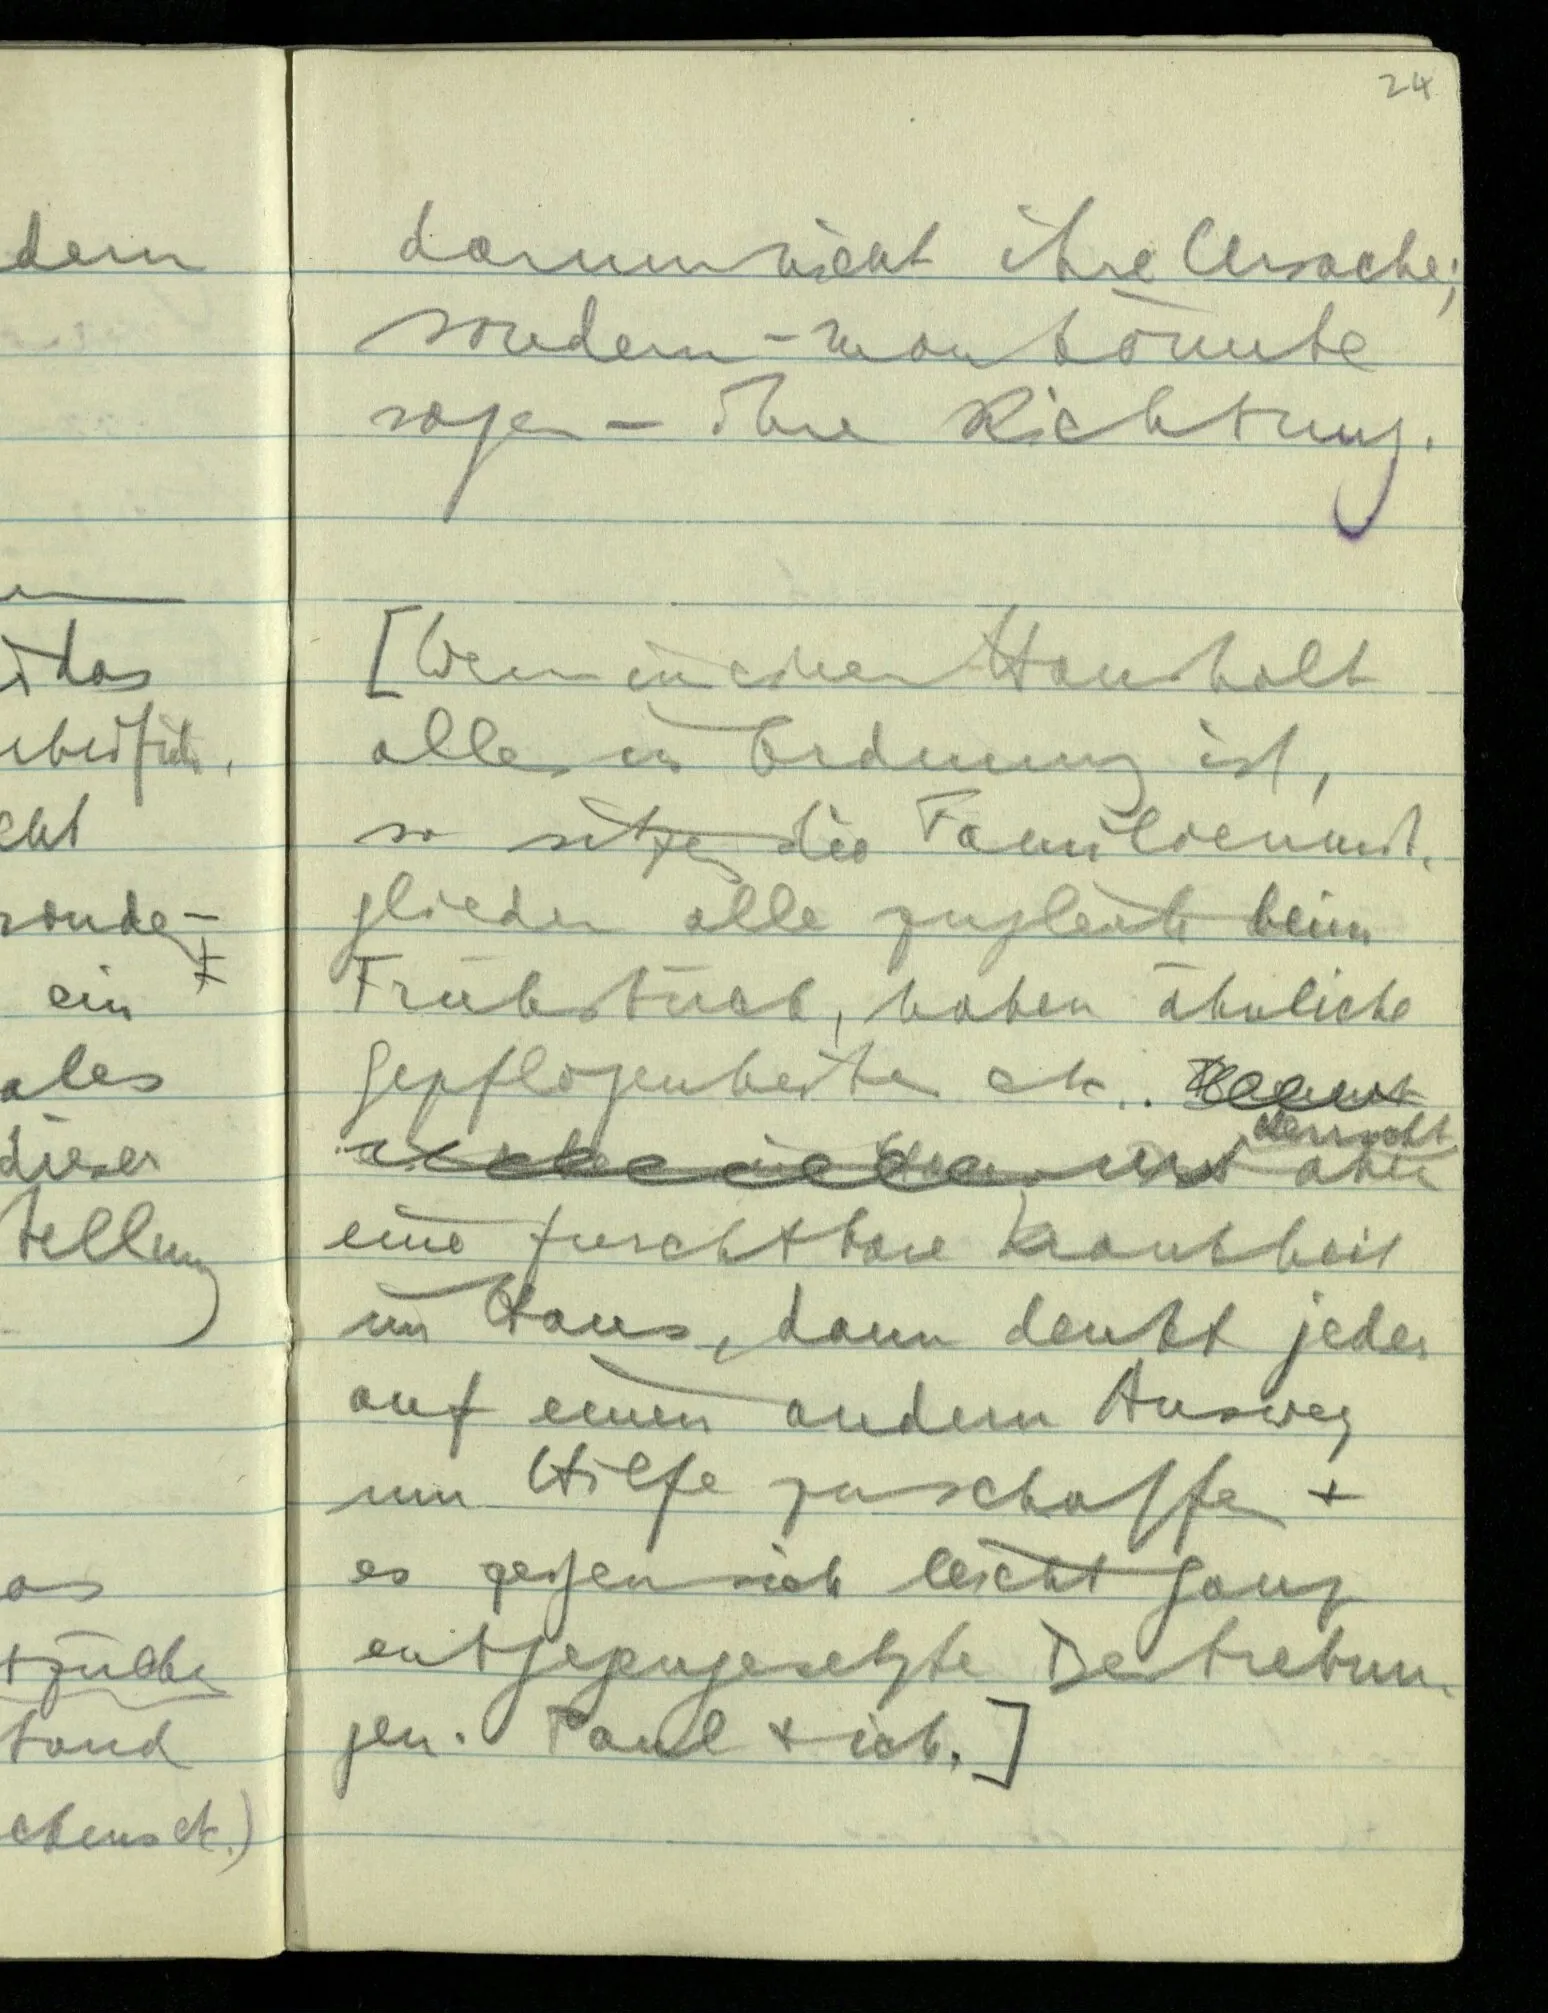 24
dern
das
cht
ein
ales
dieser
tellung
as
tand
darum nicht ihre Ursache;
sondern – man könnte
sagen – ihre Richtung.
[Wenn in einem Haushalt
alles in Ordnung ist,
so sitzen die Familienmit-
glieder alle zugleich beim
Frühstück, haben ähnliche
Gepflogenheiten etc..
herrscht
aber
eine furchtbare Krankheit
im Haus, dann denkt jeder
auf einen andern Ausweg
um Hilfe zu schaffen +
es zeigen sich leicht ganz
entgegengesetzte Bestrebun-
gen. Paul + ich.]